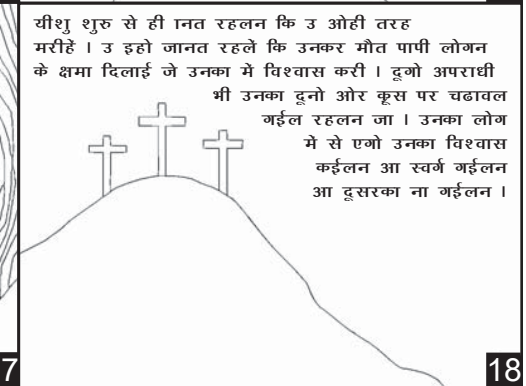 यीशु शुरु से ही ानत रहलन कि उ ओही तरह
मरीहें । उ इहो जानत रहलें कि उनकर मौत पापी लोगन
के क्षमा दिलाई जे उनका में विश्वास करी । दूगो अपराधी
भी उनका दूनो ओर कूस पर चढावल
गईल रहलन जा । उनका लोग
में से एगो उनका विश्वास
कईलन आ स्वर्ग गईलन
आ दूसरका ना गईलन ।
7
18